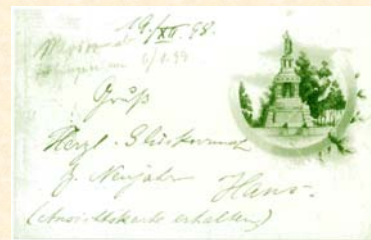 19./XII. 98.
6/1.99
Gruß
Herzl. Glückwunsch
z. Neujahr Hans.
(Ansichtskarte erhalten)